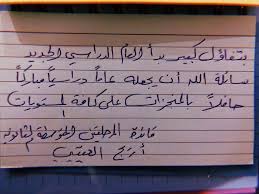 بتفاؤل كبير بدأ العام الدراسي الجديد
سائلة الله أن يجعله عاماً دراسياً مباركاً
حافلاً بالمنجزات على كافة المستويات
قائدة المجمعتين المتوسطة والثانوية
أريج العتيبي